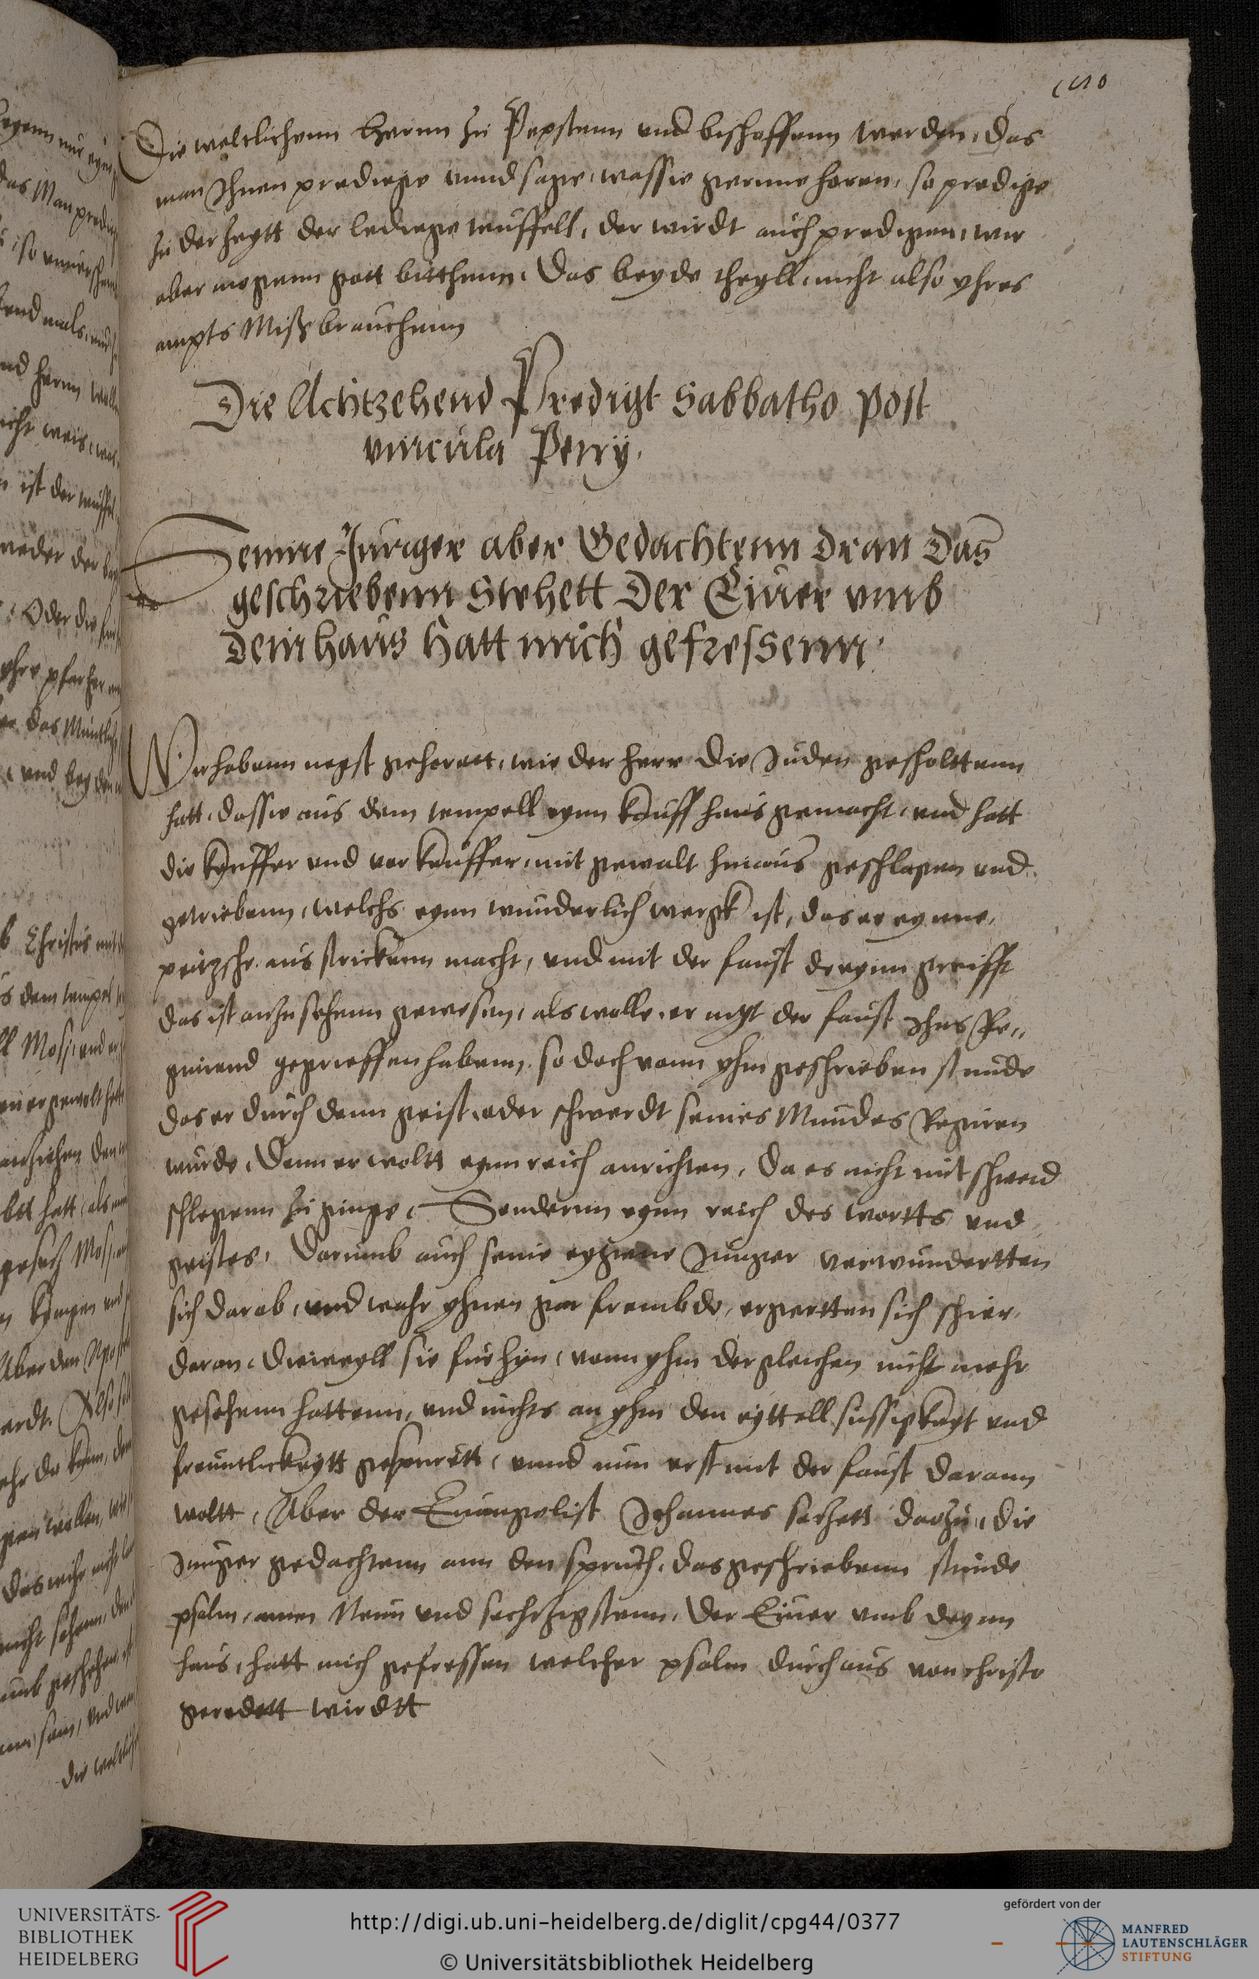 Die weltlichenn herrnn zu Pepstenn und bischoffenn werden, Das
man Ihnen predige unnd sage, wassie gerinne horen, so predige
In der Zeytt der ledige teuffell, der wirdt auch predigen, wir
aber mogenn gott bitthenn, Das beyde theyll nicht also yhres
ampts Mißbrauchenn
Die Achtzehend Predigt Sabbatho post
vincula Petrÿ.
Seinne Junger aber Gedachtenn dran Das
geschriebenn Stehett Der Eiuer umb
dein haus Hatt mich gefressenn.
Wir habenn negst gehorett, wie der herr die Juden gescholttenn
hatt, dassie aus dem tempell eynn kauffhaus gemacht, und hatt
die keuffer und verkeuffer, mit gewalt hinaus geschlagen und
getriebenn, welchs eynn wunderlich wergk ist, das er eynne,
peitzsche aus strickenn macht, und mit der faust dreynn greifft
das ist anzusehenn gewesen, als wolle er mit der faust Ihns Re=
giment gegrieffen habenn, so doch vonn yhm geschrieben stunde
das er durch denn geist oder schwerdt seines Mundes Regiren
wurde, Denn er woltt eynn reich anrichten, Da es nicht mit schwerd
schlegenn zu ginge, Sondernn eynn reich des wortts und
geistes, Darumb auch seine eygene Junger verwundertten
sich darab, und wahr yhnen gar frembde, ergertten sich schier
daran, Dieweyll sie furhyn, vonn yhm dergleichen nicht mehr
gesehenn hattenn, und nichts an yhm den eyttell sussigkeyt und
freuntlickeytt gespurett, unnd nun erst mit der faust darann
woltt, Aber der Euangelist Johannes setzett darzu, die
Junger gedachtenn ann den spruch, das geschriebenn stunde
psalm, amen Neun und sechszigstenn, Der Eiuer umb deynn
haus, hatt mich gefressen welcher psalm durchaus von christo
geredett wirdtt
die weltliche
UNIVERSITÄTS-
BIBLIOTHEK
HEIDELBERG
http://digi.ub.uni-heidelberg.de/diglit/cpg44/0377
© Universitätsbibliothek Heidelberg
gefördert von der
MANFRED
LAUTENSCHLÄGER
STIFTUNG